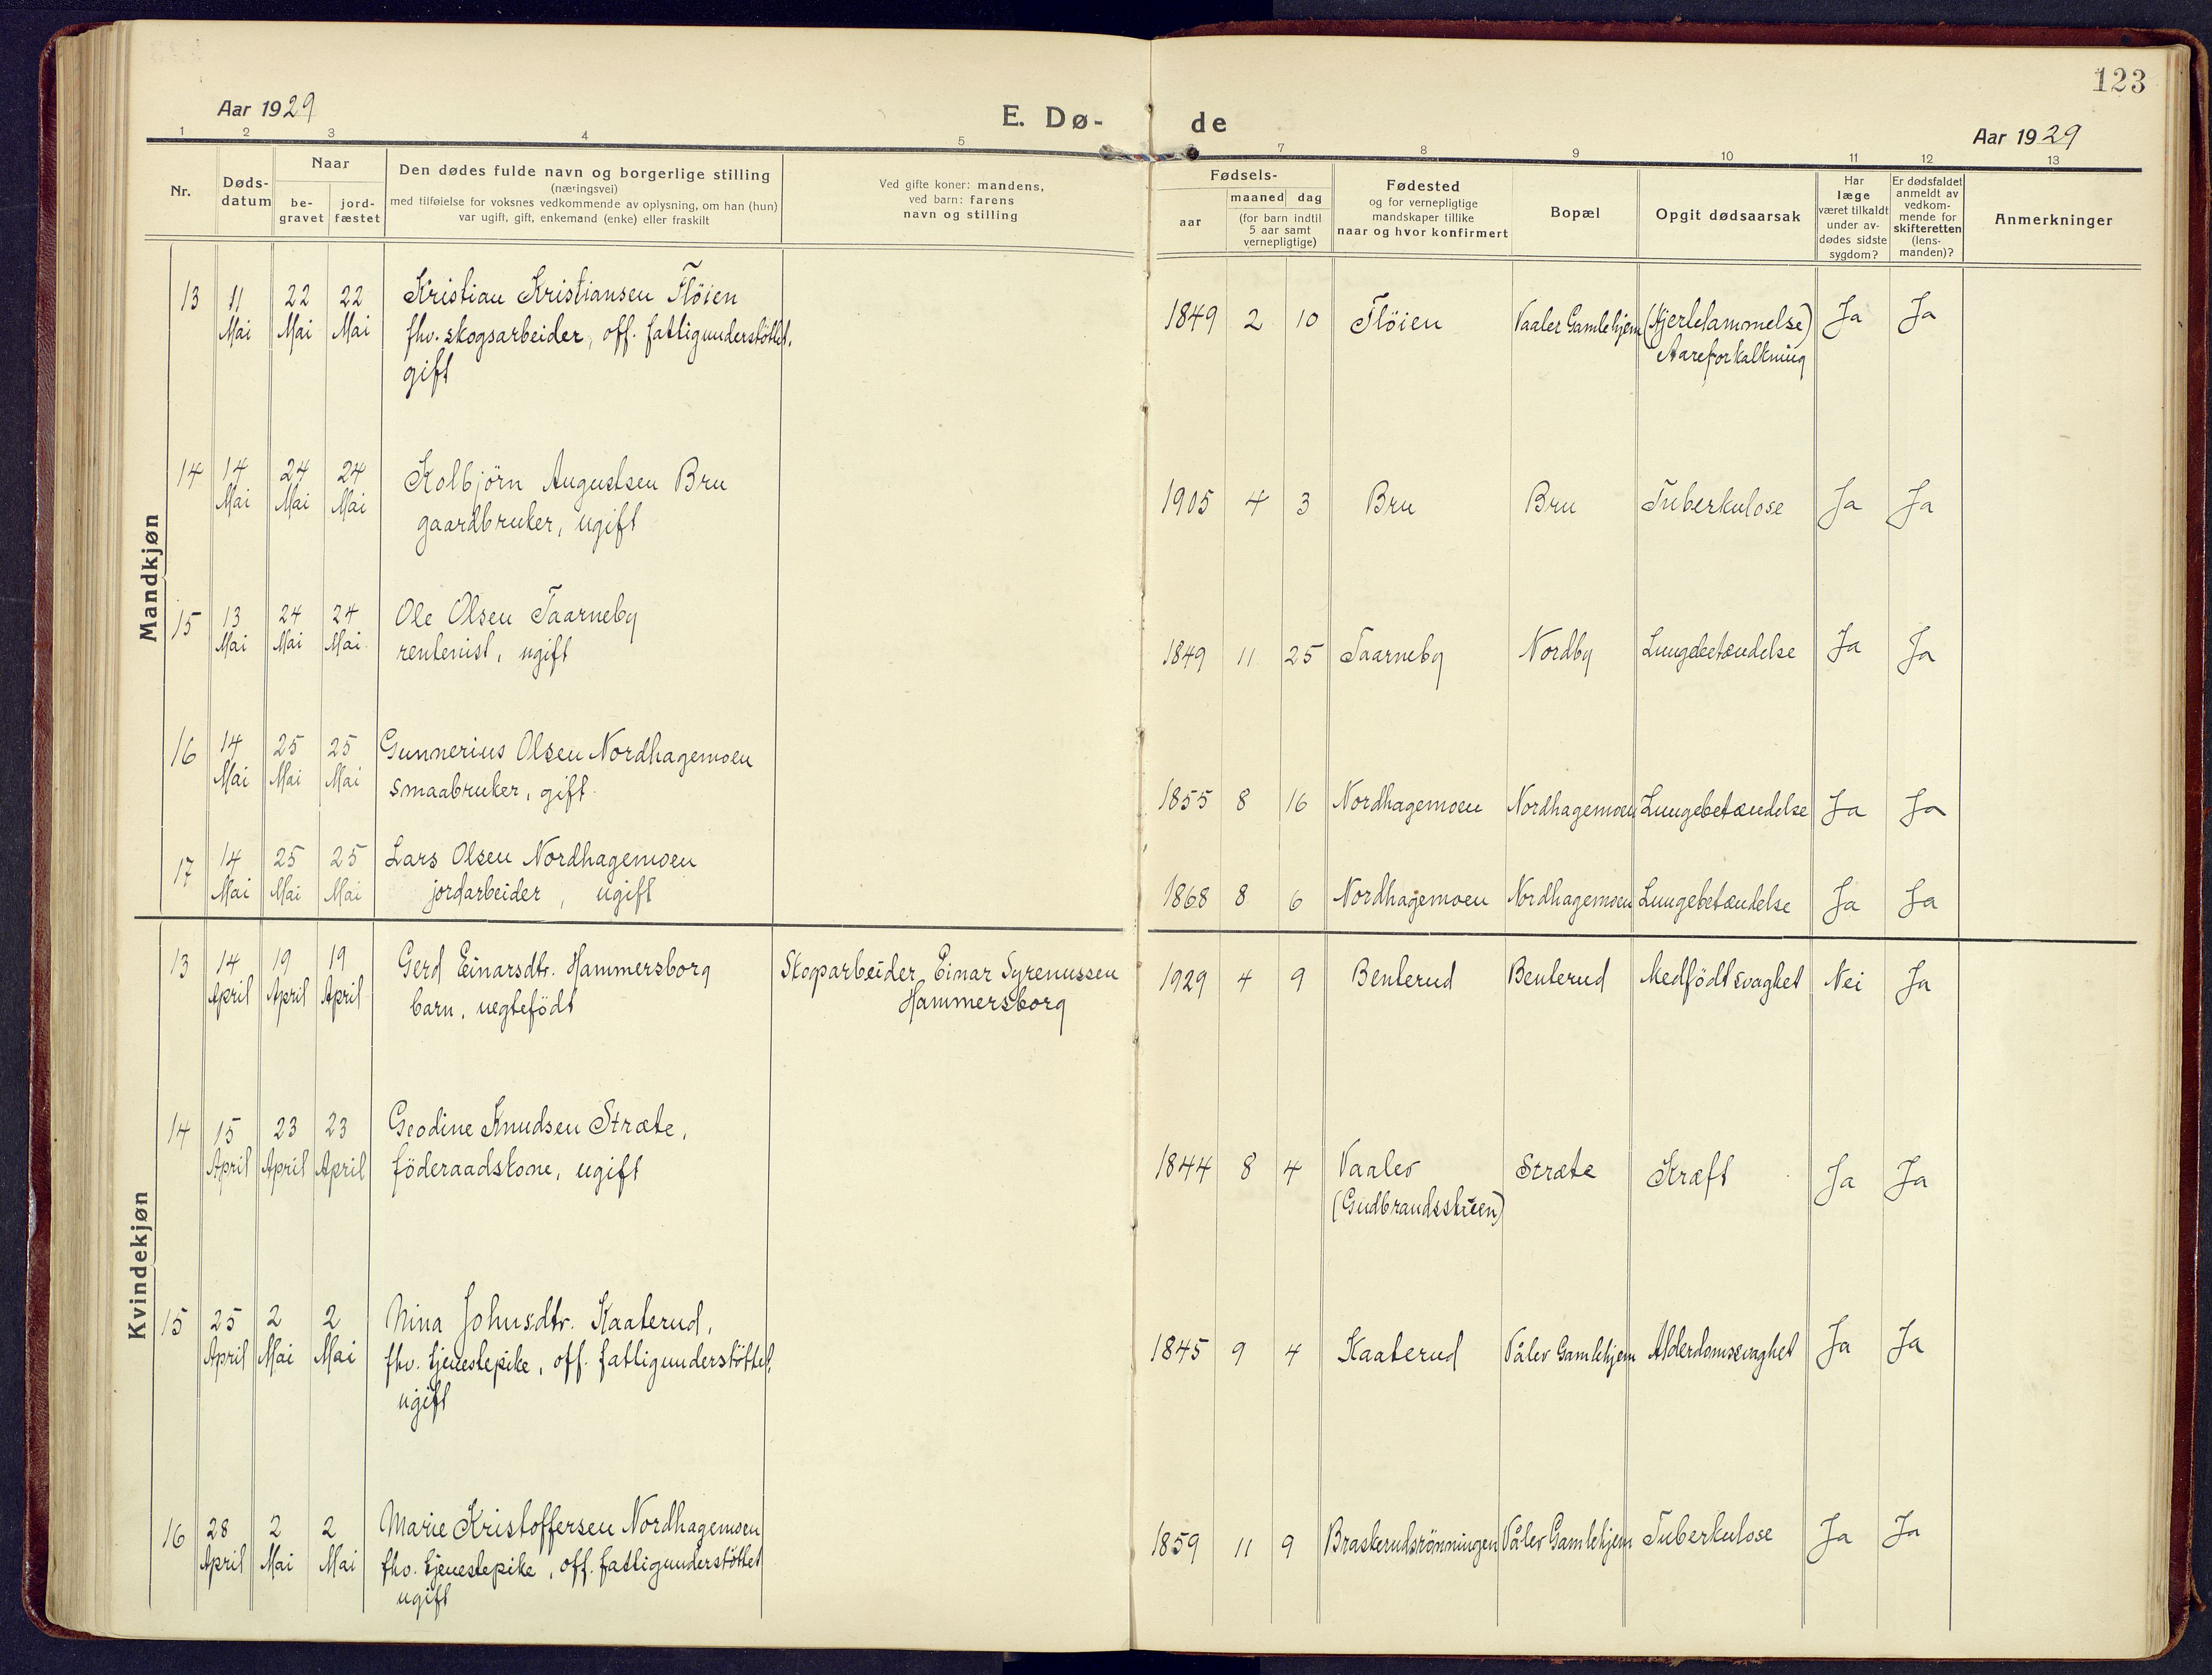 123
Aar 1929
E. Dø-
de
Aar 1929
1 2 3 4 5 7 8 9 10 11 12 13
Nr.
Døds-
datum
Naar
be-
gravet
jord-
fæstet
Den dødes fulde navn og borgerlige stilling
(næringsvei)
med tilføielse for voksnes vedkommende av oplysning, om han (hun)
var ugift, gift, enkemand (enke) eller fraskilt
Ved gifte koner: mandens,
ved barn: farens
navn og stilling
Fødsels-
aar
maaned dag
(for barn indtil
5 aar samt
vernepligtige)
Fødested
og for vernepligtige
mandskaper tillike
naar og hvor konfirmert
Bopæl
Opgit dødsaarsak
Har
læge
været tilkaldt
under av-
dødes sidste
sygdom?
Er dødsfaldet
anmeldt av
vedkom-
mende for
skifteretten
(lens-
manden)?
Anmerkninger
Mandkjøn
13 11 22 22 Kristian Kristiansen Flöien
Mai Mai Mai fhv. skogsarbeider, off. fattigunderstöttet,
gift
1849 2 10 Flöien Vaaler Gamlehjem (Hjertelammelse) Ja Ja
Aareforkalkning
14 14 24 24 Kolbjörn Augustsen Bru
Mai Mai Mai gaardbruker, ugift
1905 4 3 Bru Bru Tuberkulose Ja Ja
15 13 24 24 Ole Olsen Taarneby
Mai Mai Mai rentenist, ugift
1849 11 25 Taarneby Nordby Lungebetændelse Ja Ja
16 14 25 25 Gunnerius Olsen Nordhagemoen
Mai Mai Mai smaabruker, gift
1855 8 16 Nordhagemoen Nordhagemoen Lungebetændelse Ja Ja
17 14 25 25 Lars Olsen Nordhagemoen
Mai Mai Mai jordarbeider, ugift
1868 8 6 Nordhagemoen Nordhagemoen Lungebetændelse Ja Ja
Kvindekjøn
13 14 19 19 Gerd Einarsdtr. Hammersborg Skogarbeider Einar Syrenussen
April April April barn, uegtefödt Hammersborg
1929 4 9 Benterud Benterud Medfödt svaghet Nei Ja
14 15 23 23 Geodine Knudsen Stræte,
April April April föderaadskone, ugift
1844 8 4 Vaaler Stræte Kræft Ja Ja
(Gudbrandsstuen)
15 25 2 2 Nina Johnsdtr. Kaaterud,
April Mai Mai fhv. tjenestepike, off. fattigunderstöttet,
ugift
1845 9 4 Kaaterud Våler Gamlehjem Alderdomssvaghet Ja Ja
16 28 2 2 Marie Kristoffersen Nordhagemoen
April Mai Mai fhv. tjenestepike, off. fattigunderstöttet
ugift
1859 11 9 Braskerudsrönningen Våler Gamlehjem Tuberkulose Ja Ja